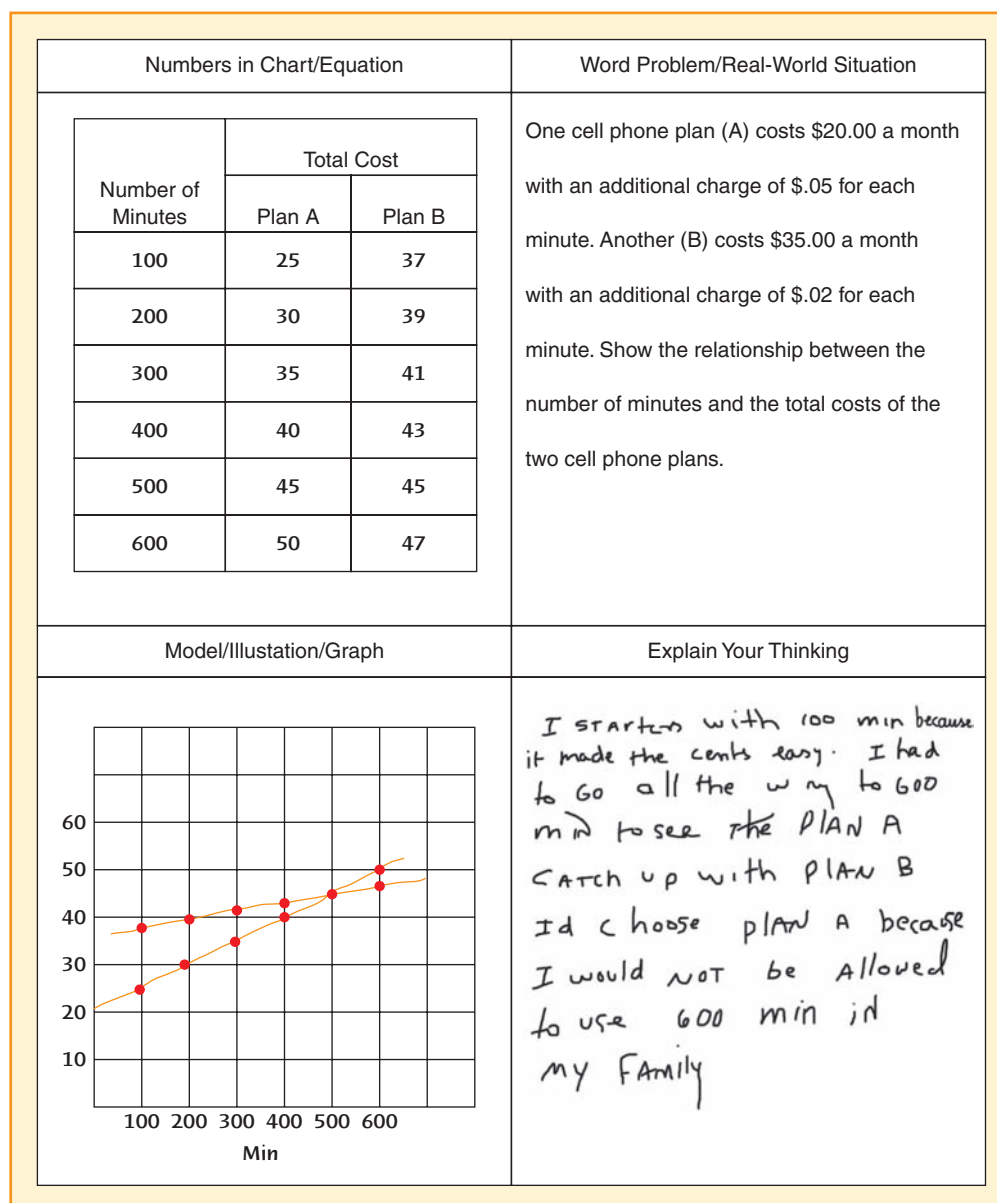 Numbers in Chart/Equation
Word Problem/Real-World Situation
Number of
Minutes
Total Cost
Plan A Plan B
100 25 37
200 30 39
300 35 41
400 40 43
500 45 45
600 50 47
One cell phone plan (A) costs $20.00 a month
with an additional charge of $.05 for each
minute. Another (B) costs $35.00 a month
with an additional charge of $.02 for each
minute. Show the relationship between the
number of minutes and the total costs of the
two cell phone plans.
Model/Illustation/Graph
60
50
40
30
20
10
100 200 300 400 500 600
Min
Explain Your Thinking
I STArted with 100 min because
it made the cents easy. I had
to GO all the way to 600
min to see the PlAN A
CATCh up with PlAN B
Id choose plAN A because
I would NOT be Allowed
to use 600 min in
my FAmily